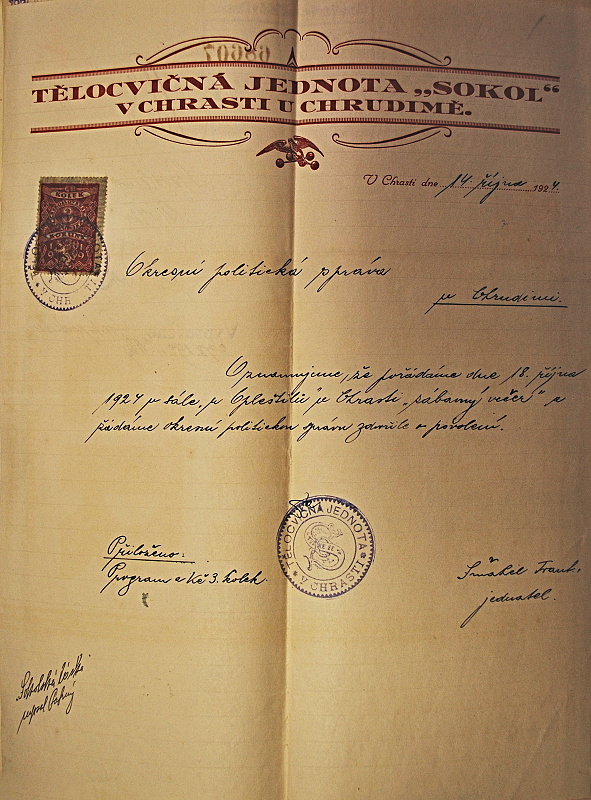 TĚLOCVIČNÁ JEDNOTA „SOKOL“
V CHRASTI U CHRUDIMĚ.
V Chrasti dne 14. října 1924.
KOLEK
V CHR TI
Okresní politická správa
v Chrudimi.
Oznamujeme, že pořádáme dne 18. října
1924 v sále „u Opleštilů“ v Chrasti „zábavný večer“ a
žádáme okresní politickou správu zdvořile o povolení.
TĚLOCVIČNÁ JEDNOTA
V CHRASTI
Přiloženo:
Program a Kč 3. kolek.
Šmahel Frant.
jednatel.
68607